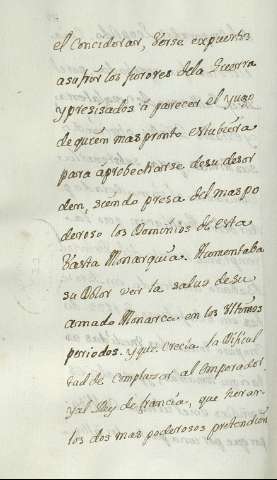 el Conciderar, verse expuertos
asufrir los horores dela Guerra
y presisados á parecer el yugo
de quien mas pronto estubiera
para aprobecharse de su desor
den, siendo presa del mas po
deroso los Dominios de esta
Vasta Monarquia. Aumentaba
su Dolor ver la salud de su
amado Monarca en los ultimos
periodos. y que crecia la Dificul
tad de complazer al emperador
y al Rey de francia, que heran
los dos mas poderosos pretendien